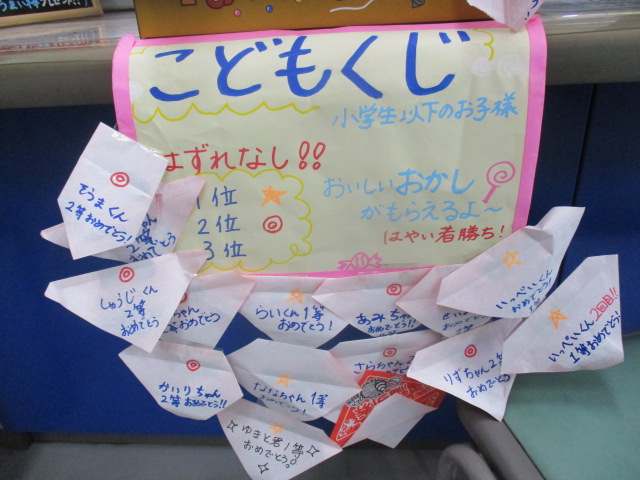 こどもくじ
小学生以下のお子様
はずれなし!!
1位
2位
3位
おいしいおかし
がもらえるよ～
はやい者勝ち!
とうまくん
2等おめでとう!
しゅうじくん
2等
おめでとう
ちゃん
おめでとう
らいくん1等
おめでとう!
あみちゃん
おめでとう!!
いっぺいくん
かいりちゃん
2等おめでとう!!
ちゃん1等
おめでとう!
さらちゃん
りずちゃん2等
おめでとう
ゆきと君1等
おめでとう。